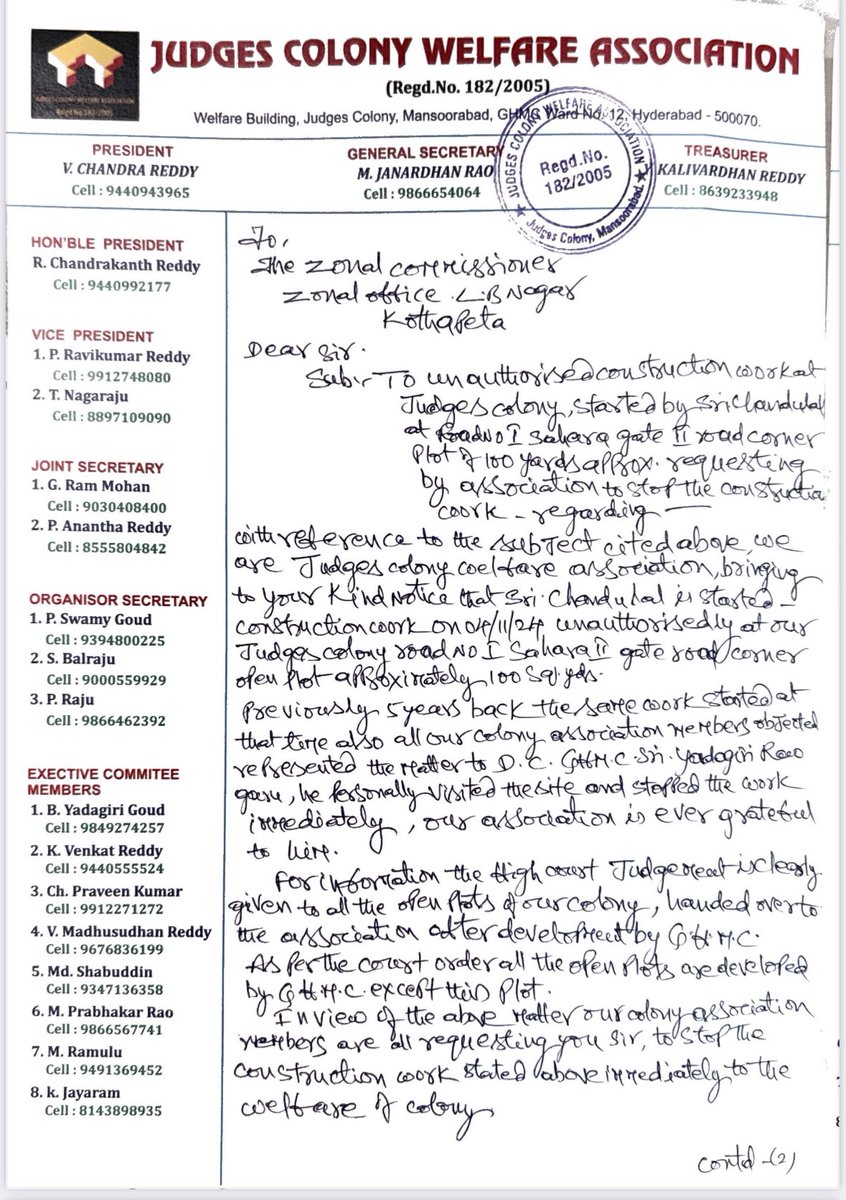 JUDGES COLONY WELFARE ASSOCIATION
Regd No 182/2005
JUDGES COLONY WELFARE ASSOCIATION
(Regd.No. 182/2005)
Welfare Building, Judges Colony, Mansoorabad, GHMC Ward No. 12, Hyderabad - 500070.
JUDGES COLONY WELFARE ASSOCIATION
Regd.No.
182/2005
Judges Colony, Mansoorabad.
PRESIDENT
V. CHANDRA REDDY
Cell : 9440943965
GENERAL SECRETARY
M. JANARDHAN RAO
Cell : 9866654064
TREASURER
KALIVARDHAN REDDY
Cell : 8639233948
HON'BLE PRESIDENT
R. Chandrakanth Reddy
Cell : 9440992177
VICE PRESIDENT
1. P. Ravikumar Reddy
Cell : 9912748080
2. T. Nagaraju
Cell : 8897109090
JOINT SECRETARY
1. G. Ram Mohan
Cell : 9030408400
2. P. Anantha Reddy
Cell : 8555804842
ORGANISOR SECRETARY
1. P. Swamy Goud
Cell : 9394800225
2. S. Balraju
Cell : 9000559929
3. P. Raju
Cell : 9866462392
EXECTIVE COMMITEE
MEMBERS
1. B. Yadagiri Goud
Cell : 9849274257
2. K. Venkat Reddy
Cell : 9440555524
3. Ch. Praveen Kumar
Cell : 9912271272
4. V. Madhusudhan Reddy
Cell : 9676836199
5. Md. Shabuddin
Cell : 9347136358
6. M. Prabhakar Rao
Cell : 9866567741
7. M. Ramulu
Cell : 9491369452
8. k. Jayaram
Cell : 8143898935
To,
The Zonal commissioner
Zonal office L.B Nagar
Kothapeta
Dear Sir.
Sub:- To unauthorised construction work at
Judges colony, started by Sri Chandulal
at Road No I Sahara gate II road corner
Plot of 100 yards approx. requesting
by association to stop the constructio
work - regarding —
with reference to the subject cited above, we
are Judges colony welfare association, bringing
to your kind notice that Sri. Chandulal is started -
construction work on 04/11/24 unauthorisedly at our
Judges colony road No I Sahara II gate road corner
open plot approximately 100 sq. yds.
Previously 5 years back the same work started at
that time also all our colony association members objected
represented the matter to D.C. GHMC Sri. Yadagiri Rao
garu, he personally visited the site and stopped the work
immediately, our association is ever grateful
to him.
For information the High court Judgement is clearly
given to all the open plots of our colony, handed over to
the association after development by GHMC.
As per the court order all the open plots are developed
by GHMC except this plot.
In view of the above matter our colony association
members are all requesting you sir, to stop the
construction work stated above immediately to the
welfare of colony,
contd -(2)